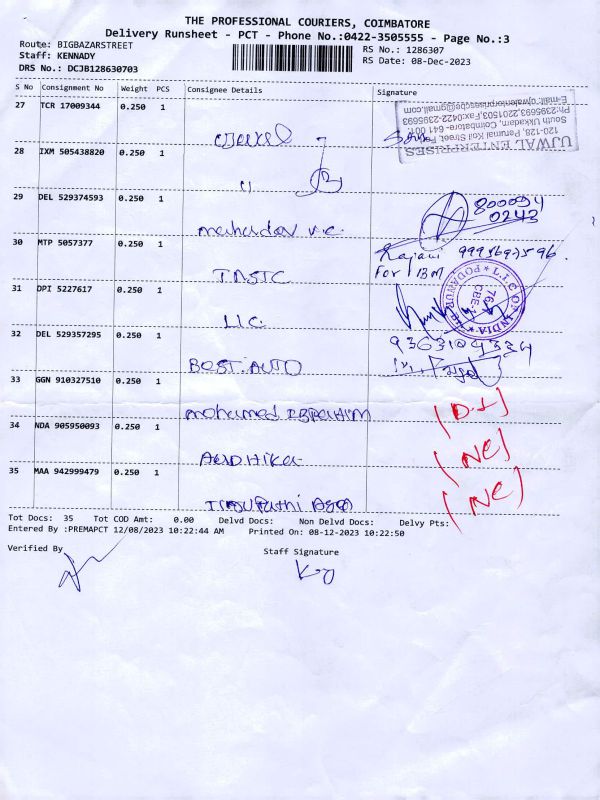 THE PROFESSIONAL COURIERS, COIMBATORE
Delivery Runsheet - PCT - Phone No.:0422-3505555 - Page No.:3
Route: BIGBAZARSTREET
RS No.: 1286307
Staff: KENNADY
RS Date: 08-Dec-2023
DRS No.: DCJB128630703
S No Consignment No Weight PCS Consignee Details Signature
27 TCR 17009344 0.250 1
UJWAL ENTERPRISES
122-128, Perumal Koil Street,
South Ukkadam, Coimbatore- 641 001.
Ph:2395693,2201693,Fax:0422-2395693
28 IXM 505438820 0.250 1
"
29 DEL 529374593 0.250 1
mahadev v.c.
800094
0243
30 MTP 5057377 0.250 1
TNSTC
Rajani
For IBM
31 DPI 5227617 0.250 1
LIC
L.I.C OF INDIA PODANUR
32 DEL 529357295 0.250 1
BEST AUTO
9363104334
33 GGN 910327510 0.250 1
mohamed IBRAHIM
(D.L)
34 NDA 905950093 0.250 1
AADHIKA
(NC)
35 MAA 942999479 0.250 1
(NC)
Tot Docs: 35 Tot COD Amt: 0.00 Delvd Docs: Non Delvd Docs: Delvy Pts:
Entered By :PREMAPCT 12/08/2023 10:22:44 AM Printed On: 08-12-2023 10:22:50
Verified By
Staff Signature